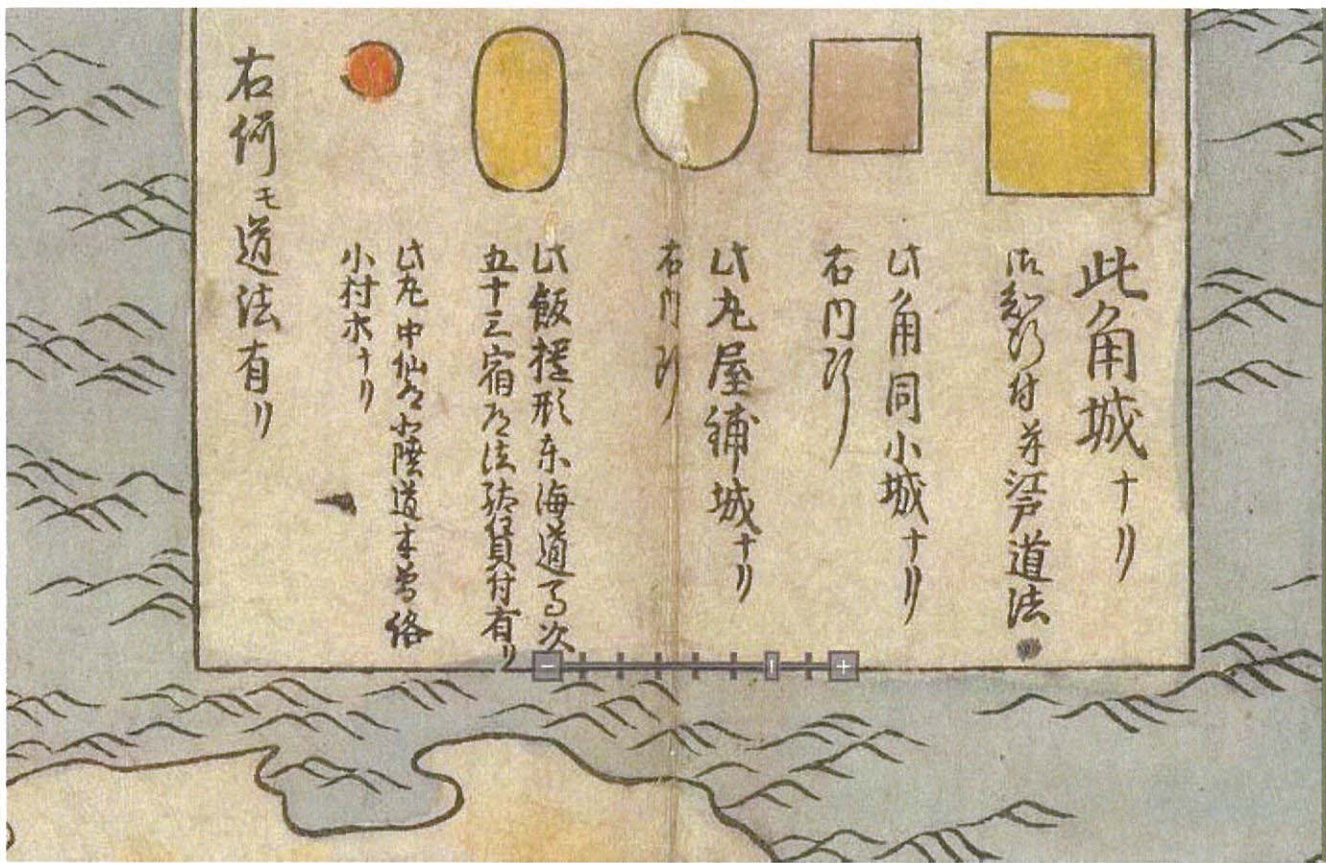 此角城ナリ
御知行付并江戸道法
此角同小城ナリ
右同断
此丸屋鋪城ナリ
右同断
此飯櫃形東海道馬次
五十三宿道法駄賃付有リ
此丸中仙道北陸道木曽路
小村木ナリ
右何モ道法有リ